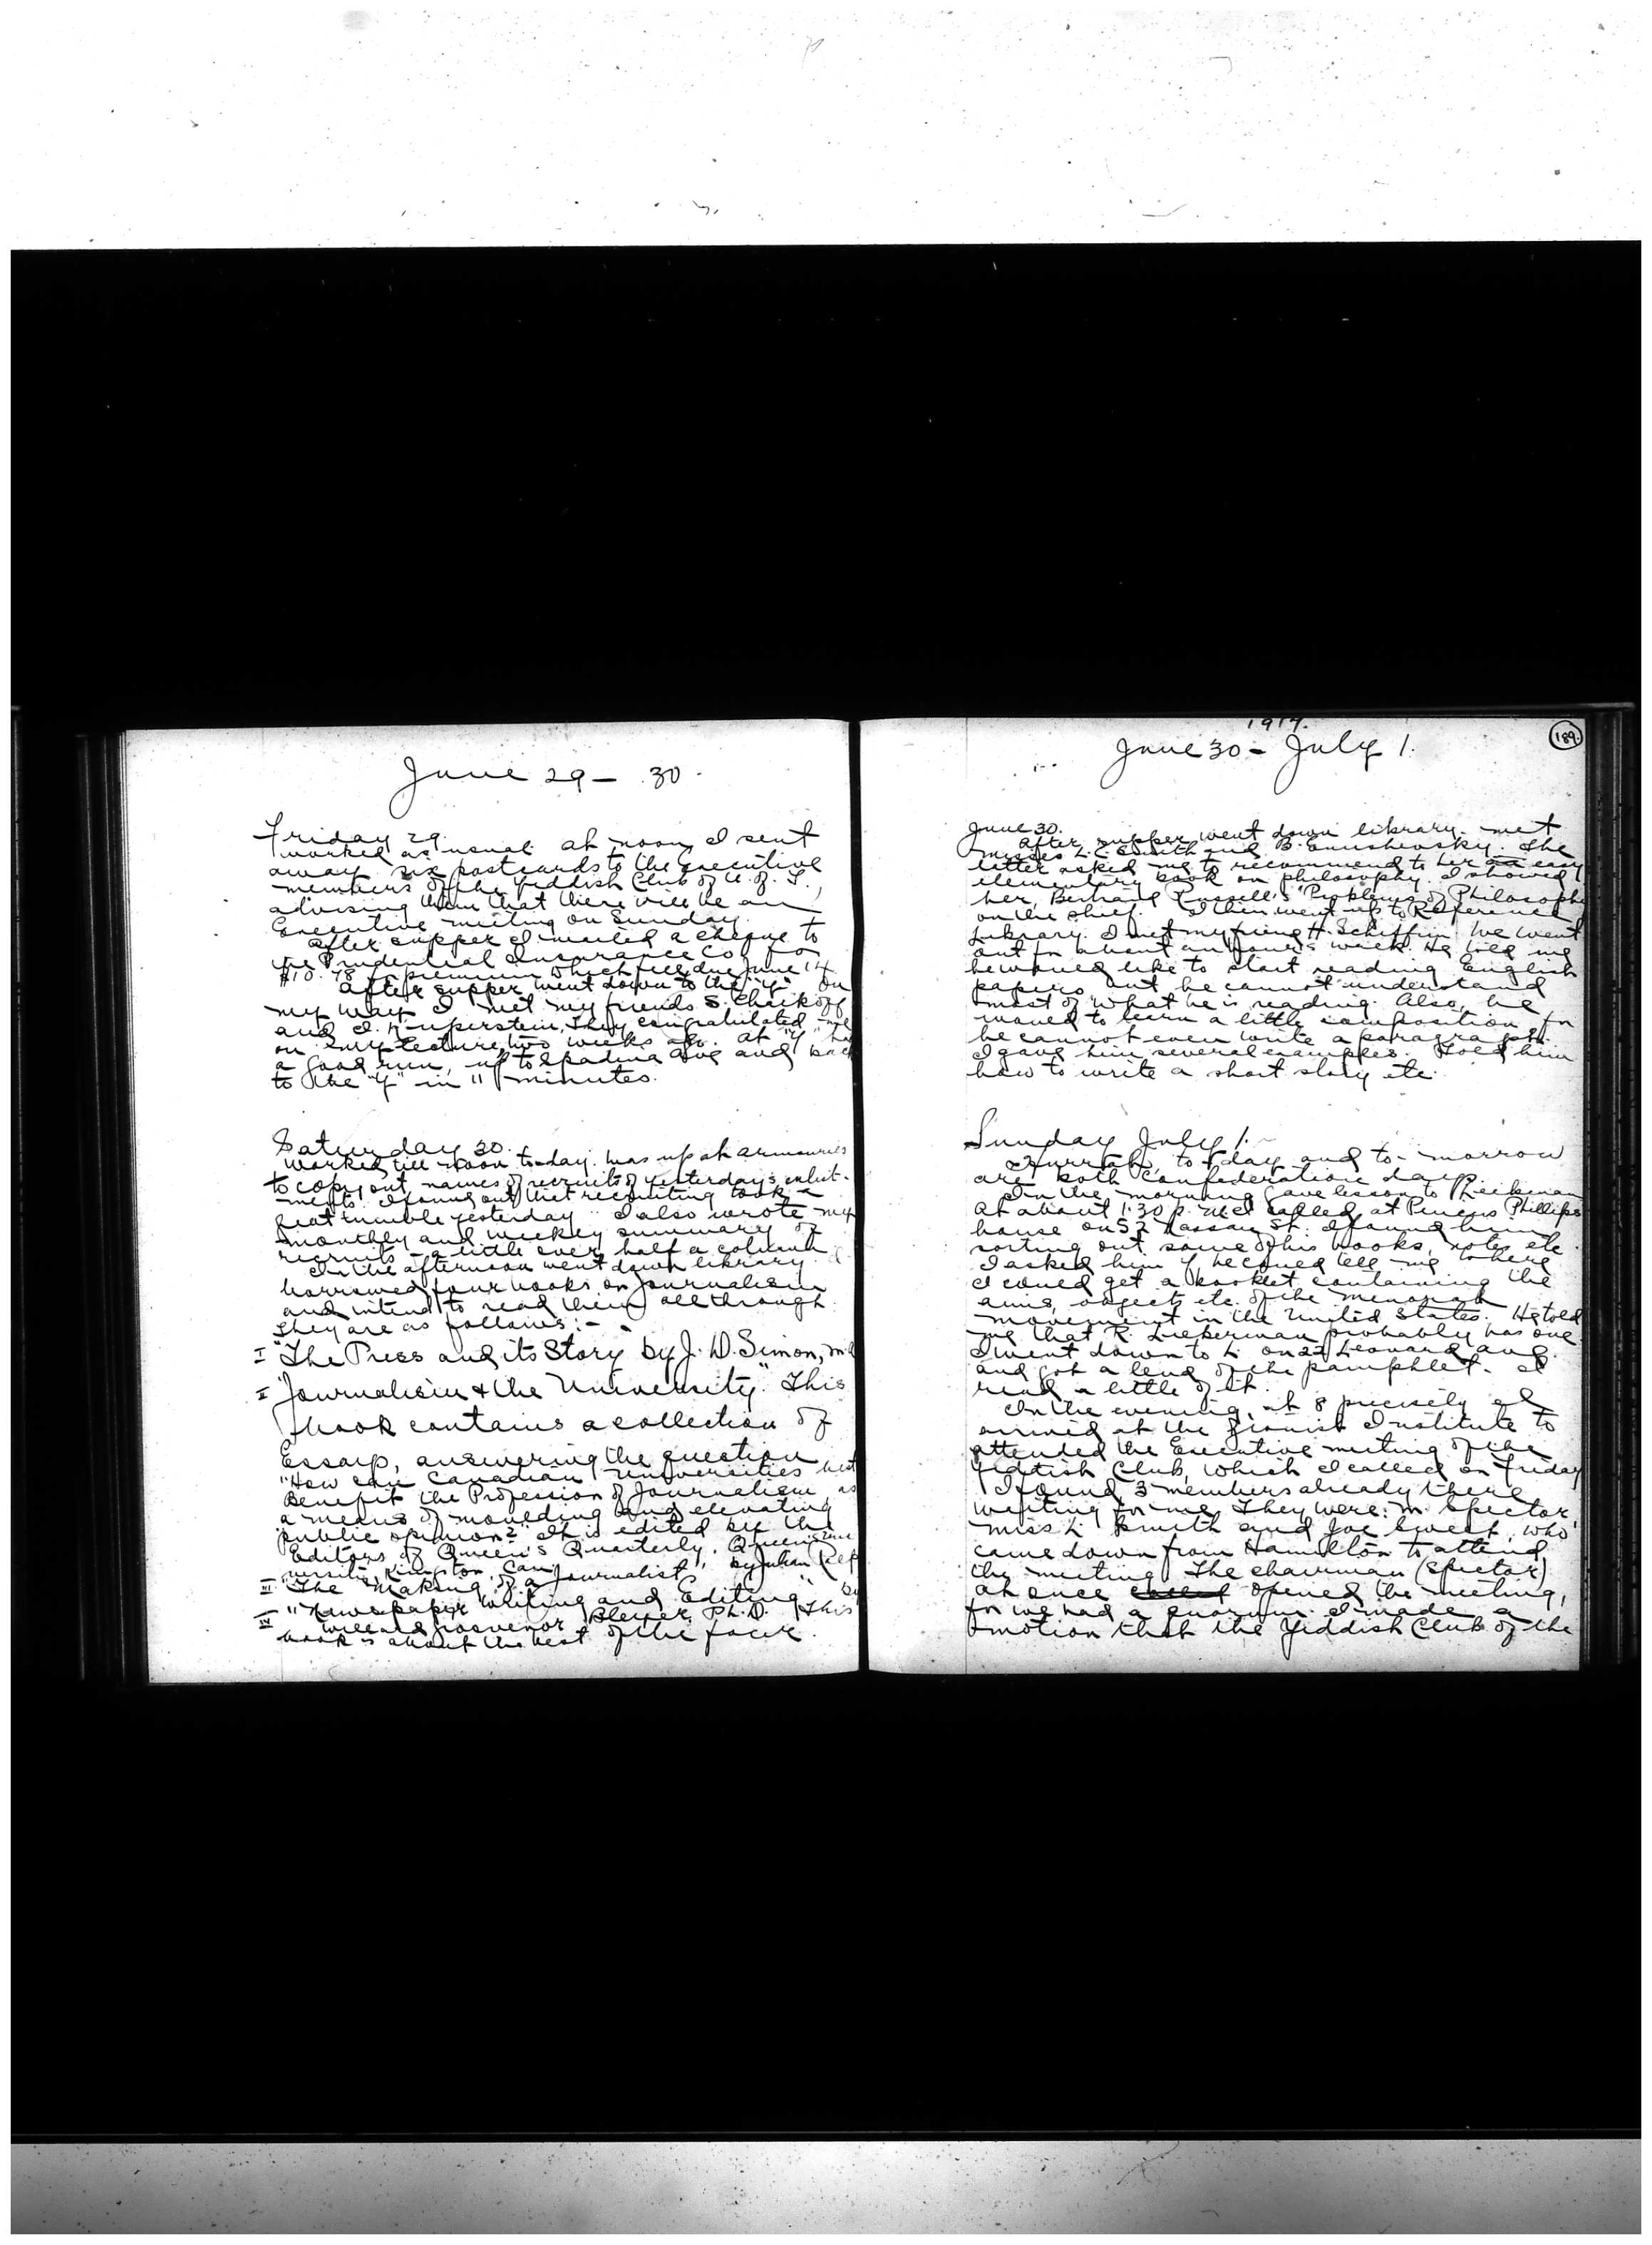 June 29 - 30.
Friday 29.
Worked as usual. At noon I sent
away six postcards to the executive
members of the Yiddish Club of U. of T.,
advising them that there will be an
Executive meeting on Sunday.
After supper I mailed a cheque to
the Prudential Insurance Co. for
$10.78 for premium which fell due June 14
After supper went down to the "Y". On
my way I met my friends S. Chaikoff
and I. Kuperstein. They congratulated me
on my lecture two weeks ago. At "Y" had
a good run, up to Spadina Ave and back
to the "Y" in 11 minutes.
Saturday 30.
Worked till noon to-day. Was up at armouries
to copy out names of recruits of yesterday's enlist-
ments. I found out that recruiting took a
great tumble yesterday. I also wrote my
monthly and weekly summary of
recruits - a little over half a column.
In the afternoon went down library. I
borrowed four books on Journalism
and intend to read them all through.
They are as follows:-
I "The Press and its Story by J. D. Simon,
II "Journalism & the University." This
book contains a collection of
Essays, answering the question
"How can Canadian Universities best
Benefit the Profession of Journalism, as
a means of moulding and elevating
public opinion?" It is edited by the
Editors of Queen's Quarterly, Queen's Uni
versity, Kingston, Can.
III "The Making of a Journalist", by Julian
IV "Newspaper Writing and Editing" by
Willard Grosvenor Bleyer, Ph.D. This
book is about the best of the four.
1917.
189.
June 30 - July 1.
June 30.
After supper went down library. Met
Misses L. Smith and B. The
latter asked me to recommend to her an easy
elementary book on philosophy. I showed
her, Bertrand Russell's "Problems of Philosophy
on the shelf. I then went up to Reference
Library. I met my friend H. Schiffrin. We went
out for about an hour's walk. He told me
he would like to start reading English
papers but he cannot understand
most of what he is reading. Also, he
wanted to learn a little composition for
he cannot even write a paragraph.
I gave him several examples. Told him
how to write a short story etc.
Sunday July 1.
Hurrah, to-day and to-morrow
are both Confederation days.
In the morning gave lesson to
At about 1:30 p.m. I called at Pincus Phillips
house on 52 Nassau St. I found him
sorting out some of his books, notes etc.
I asked him if he could tell me where
I could get a booklet containing the
aims, objects etc. of the Menorah
movement in the United States. He told
me that R. Lieberman probably has one.
I went down to L. on 27 Leonard Ave.
and got a lend of the pamphlet. I
read a little of it.
In the evening, at 8 precisely I
arrived at the Zionist Institute to
attended the Executive meeting of the
Yiddish Club, which I called on Friday
I found 3 members already there
waiting for me. They were: M. Spector,
Miss L. Smith and Joe Sweet, who
came down from Hamilton to attend
the meeting. The chairman (Spector)
at once called opened the meeting,
for we had a quorum. I made a
motion that the Yiddish Club of the